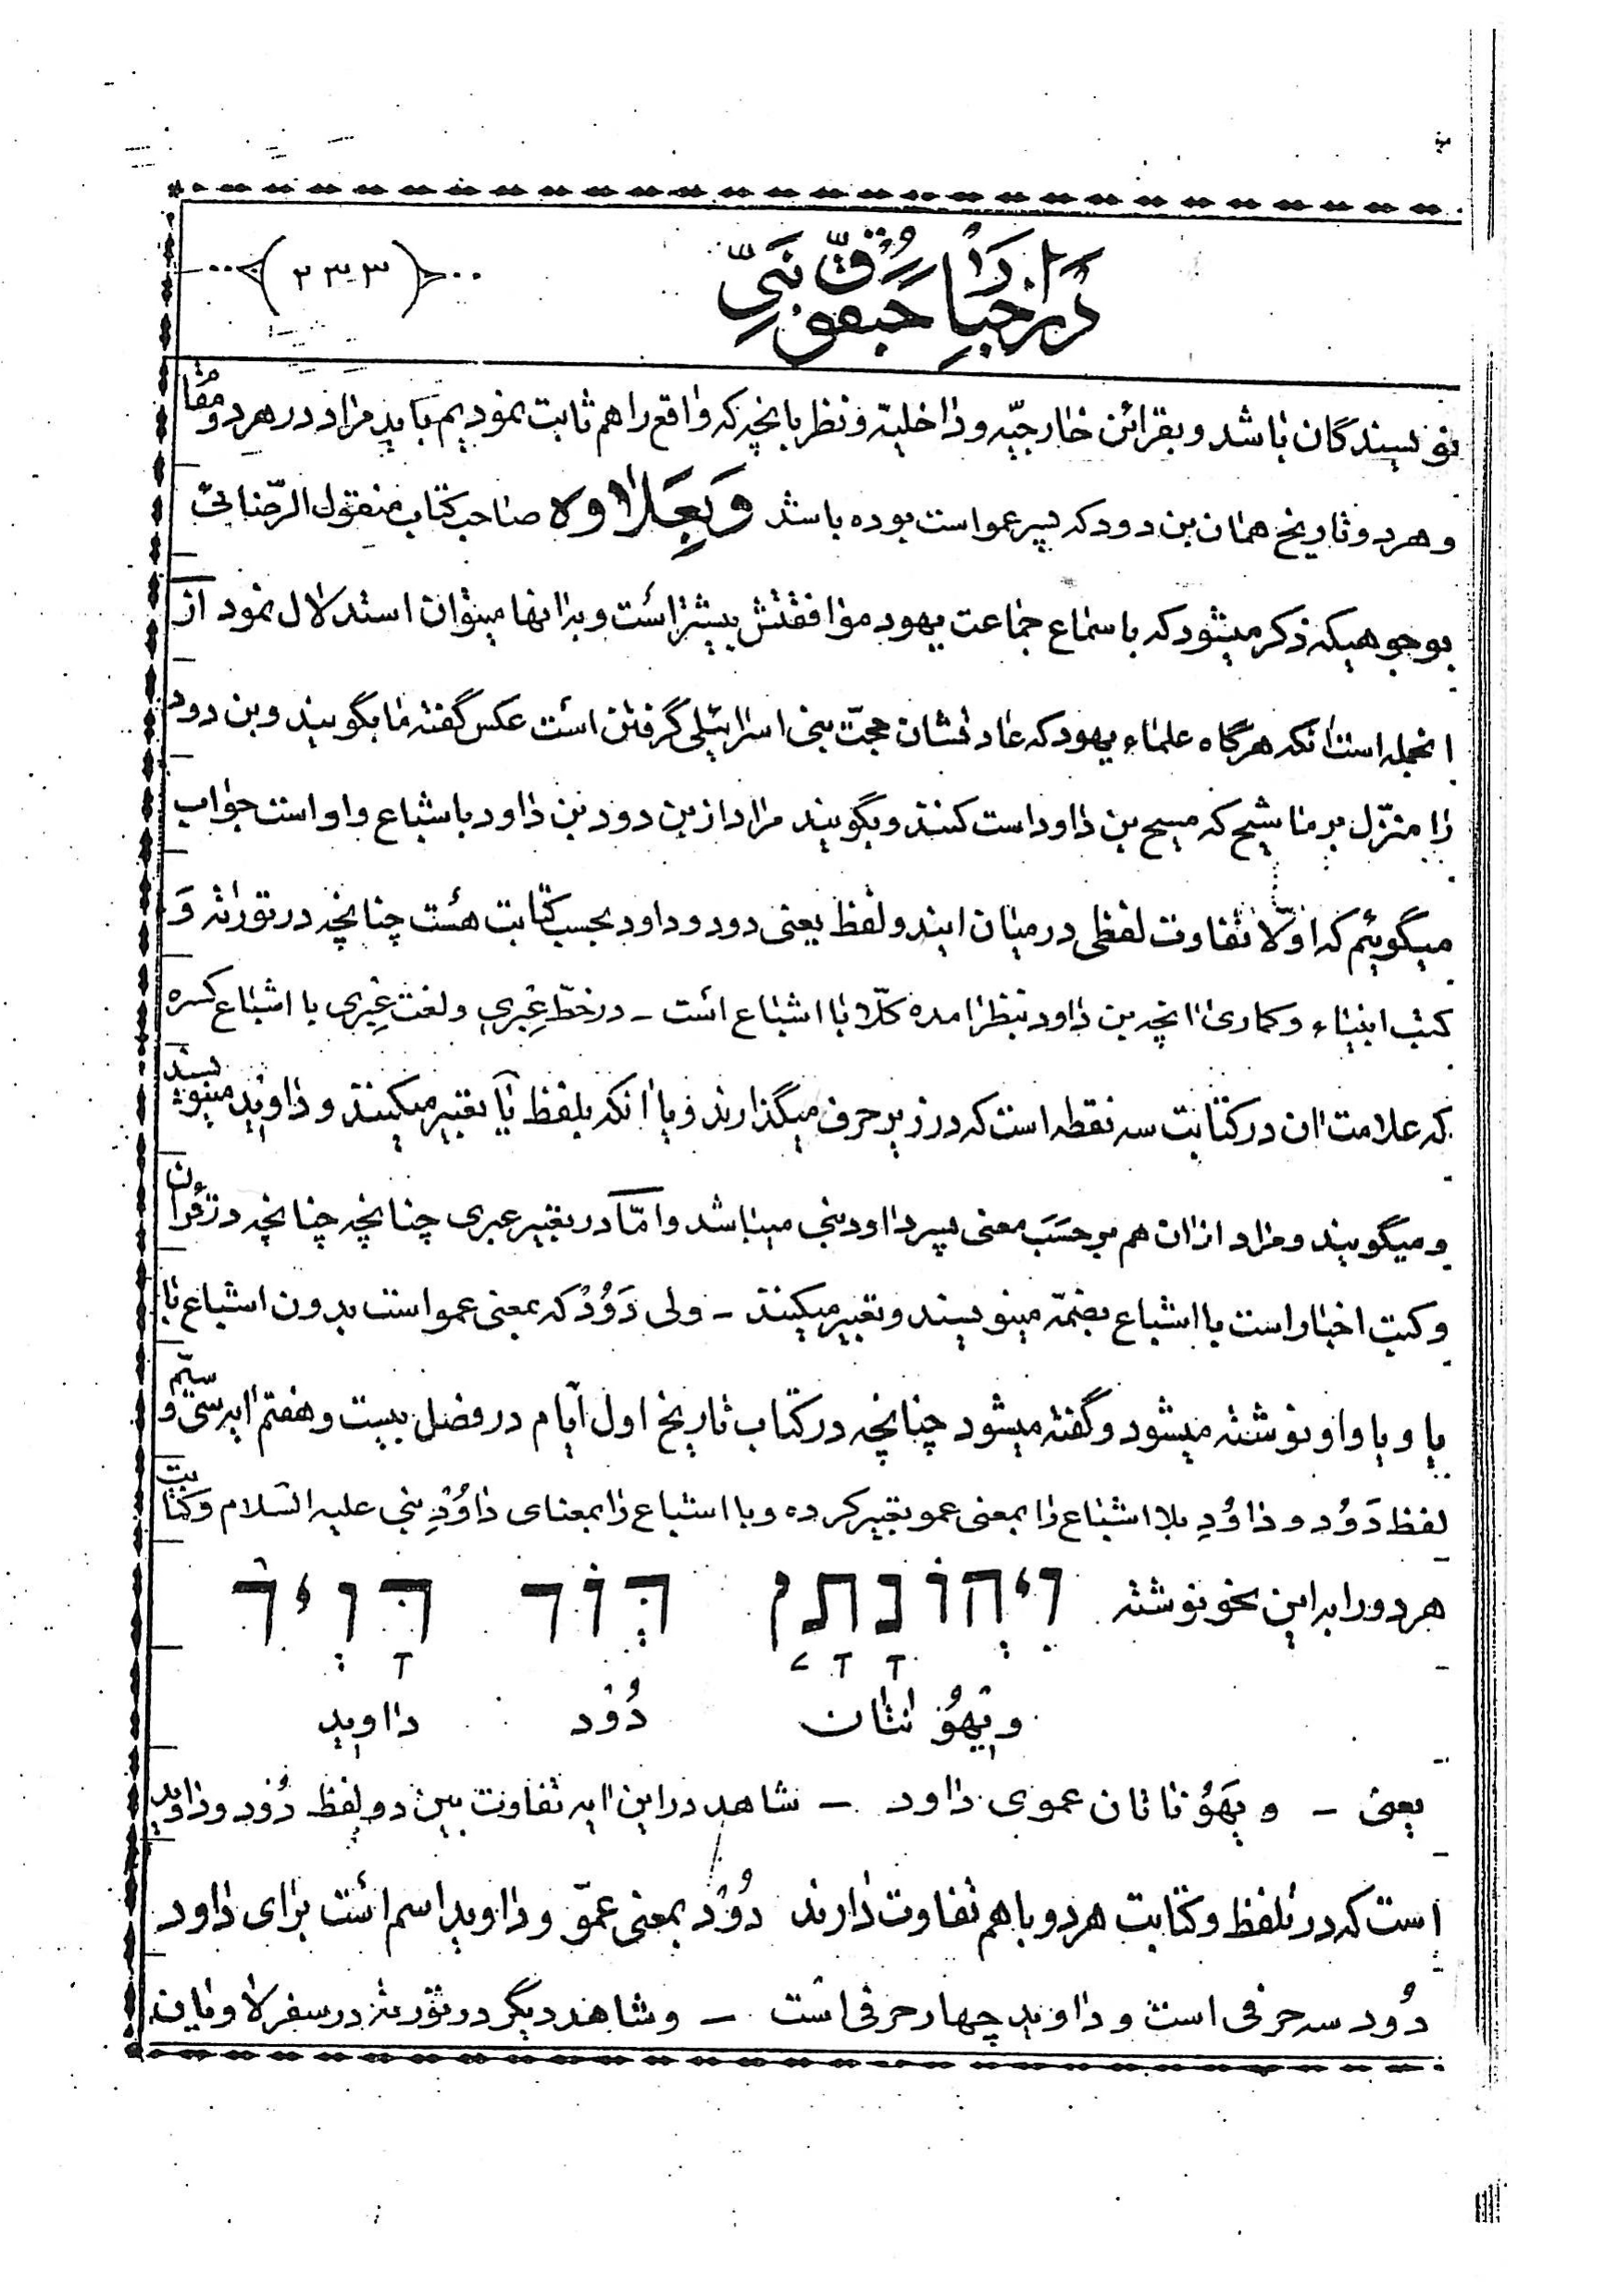 دراخبار حبقوق نبی
(۲۳۳)
نویسندگان باشد و بقرائن خارجیّه و داخلیّه و نظر بانچه که واقع را هم ثابت نمودیم باید مراد در هر دو مقا
و هر دو تاریخ همان بن دود که پسر عمو است بوده باشد وَبِعَلاوه صاحب کتاب منقول الرّضائی
بوجوهیکه ذکر میشود که باسماع جماعت یهود موافقتش بیشتر است و بدانها میتوان استدلال نمود از
انجمله است انکه هرگاه علماء یهود که عادتشان حجّت بنی اسرائیلی گرفتن است عکس گفته ما بگویند و بن دود
را منزّل بر ماشیح که مسیح بن داود است کنند و بگویند مراد از بن دود بن داود باشباع واو است جواب
میگوئیم که اوّلا تفاوت لفظی در میان ایندو لفظ یعنی دود و داود بحسب کتابت هست چنانچه در تورات و
کتب انبیاء و کمارئ انچه بن داود بنظر امده کلّا با اشباع است – در خطّ عِبری و لغت عِبری با اشباع کسره
که علامت ان در کتابت سه نقطه است که در زیر حرف میگذارند و یا انکه بلفظ یا تعبیر میکنند و داوید مینویسند
و میگویند و مراد از ان هم بر حَسَب معنی پسر داود نبی میباشد و امّا در تعبیر عبری چنانچه چنانچه در قران
و کتب اخبار است با اشباع بضمّه مینویسند و تعبیر میکنند – ولی دَوُد که بمعنی عمو است بدون اشباع با
یا و یا واو نوشته میشود و گفته میشود چنانچه در کتاب تاریخ اول ایّام در فصل بیست و هفتم ایه سی و سیّم
لفظ دَوُد و داوُدِ بلا اشباع را بمعنی عمو تعبیر کرده و با اشباع را بمعنای داوُدِ نبی علیه السّلام و کتابت
هر دو را به این نحو نوشته ויהונתן דוד דויד
ویهُوناتان دُوْد داوید
یعنی – و یهَوُناتان عموی داود – شاهد در این ایه تفاوت بین دو لفظ دُوْد و داوید
است که در تلفظ و کتابت هر دو با هم تفاوت دارند دُوْد بمعنی عمّو و داوید اسم است برای داود
دُود سه حرفی است و داوید چهار حرفی است – و شاهد دیگر در توریة در سفر لاویان